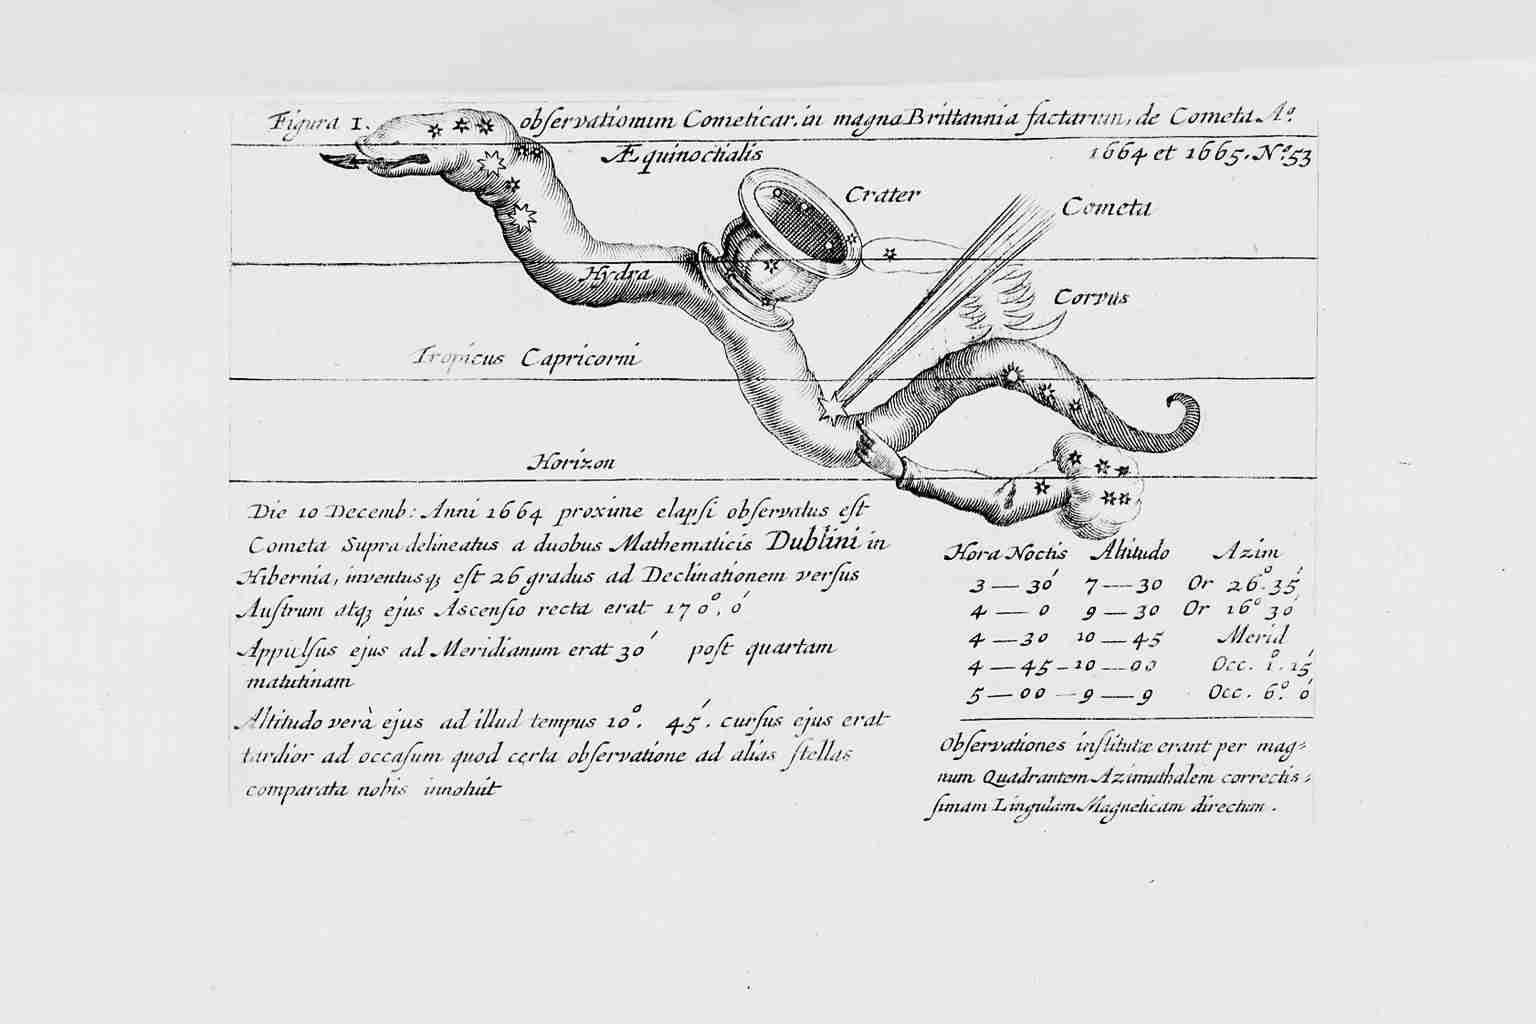 Figura I. observationum Cometicar. in magna Brittannia factarum, de Cometa Aº.
1664 et 1665. Nº. 53
Æquinoctialis
Crater
Cometa
Hydra
Corvus
Tropicus Capricorni
Horizon
Die 10 Decemb: Anni 1664 proxime elapsi observatus est
Cometa Supra delineatus a duobus Mathematicis Dublini in
Hibernia, inventusqꝫ est 26 gradus ad Declinationem versus
Austrum atqꝫ ejus Ascensio recta erat 170°. 0′
Appulsus ejus ad Meridianum erat 30′ post quartam
matutinam
Altitudo verà ejus ad illud tempus 10°. 45′. cursus ejus erat
tardior ad occasum quod certa observatione ad alias stellas
comparata nobis innotuit
Hora Noctis Altitudo Azim
3—30′ 7—30 Or 26°. 35′
4—0 9—30 Or 16° 30′
4—30 10—45 Merid
4—45—10—00 Occ. 1°. 15′
5—00—9—9 Occ. 6°. 0′
Observationes institutæ erant per mag=
num Quadrantem Azimuthalem correctis=
simam Lingulam Magneticam directum.